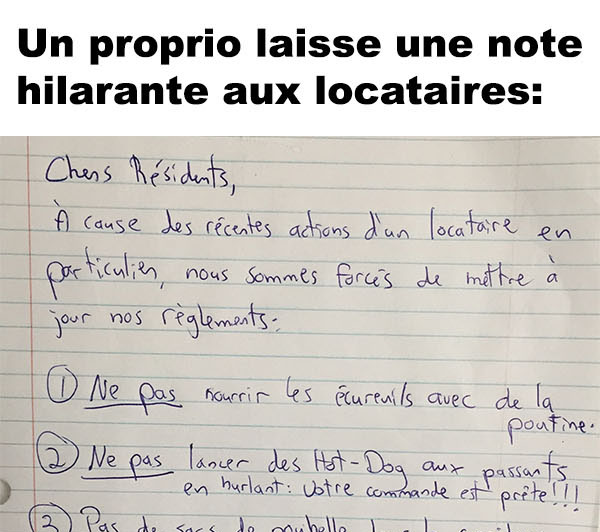 Un proprio laisse une note
hilarante aux locataires:
Chers Résidents,
À cause des récentes actions d'un locataire en
particulier, nous sommes forcés de mettre à
jour nos règlements:
① Ne pas nourrir les écureuils avec de la
poutine.
② Ne pas lancer des Hot-Dog aux passants
en hurlant: Votre commande est prête!!!
③ Pas de sacs de